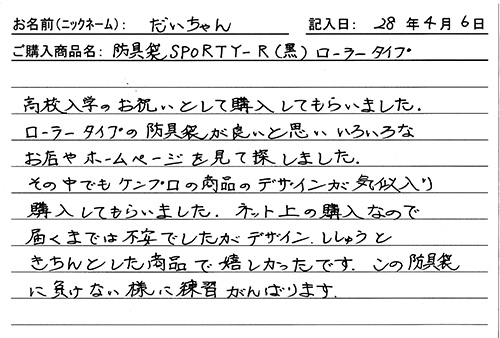 お名前(ニックネーム): だいちゃん 記入日: 28年4月6日
ご購入商品名: 防具袋SPORTY-R(黒)ローラータイプ
高校入学のお祝いとして購入してもらいました.
ローラータイプの防具袋が良いと思いいろいろな
お店やホームページを見て探しました.
その中でもケンプロの商品のデザインが気似入り
購入してもらいました. ネット上の購入なので
届くまでは不安でしたがデザイン、ししゅうと
きちんとした商品で嬉しかったです. この防具袋
に負けない様に練習がんばります.